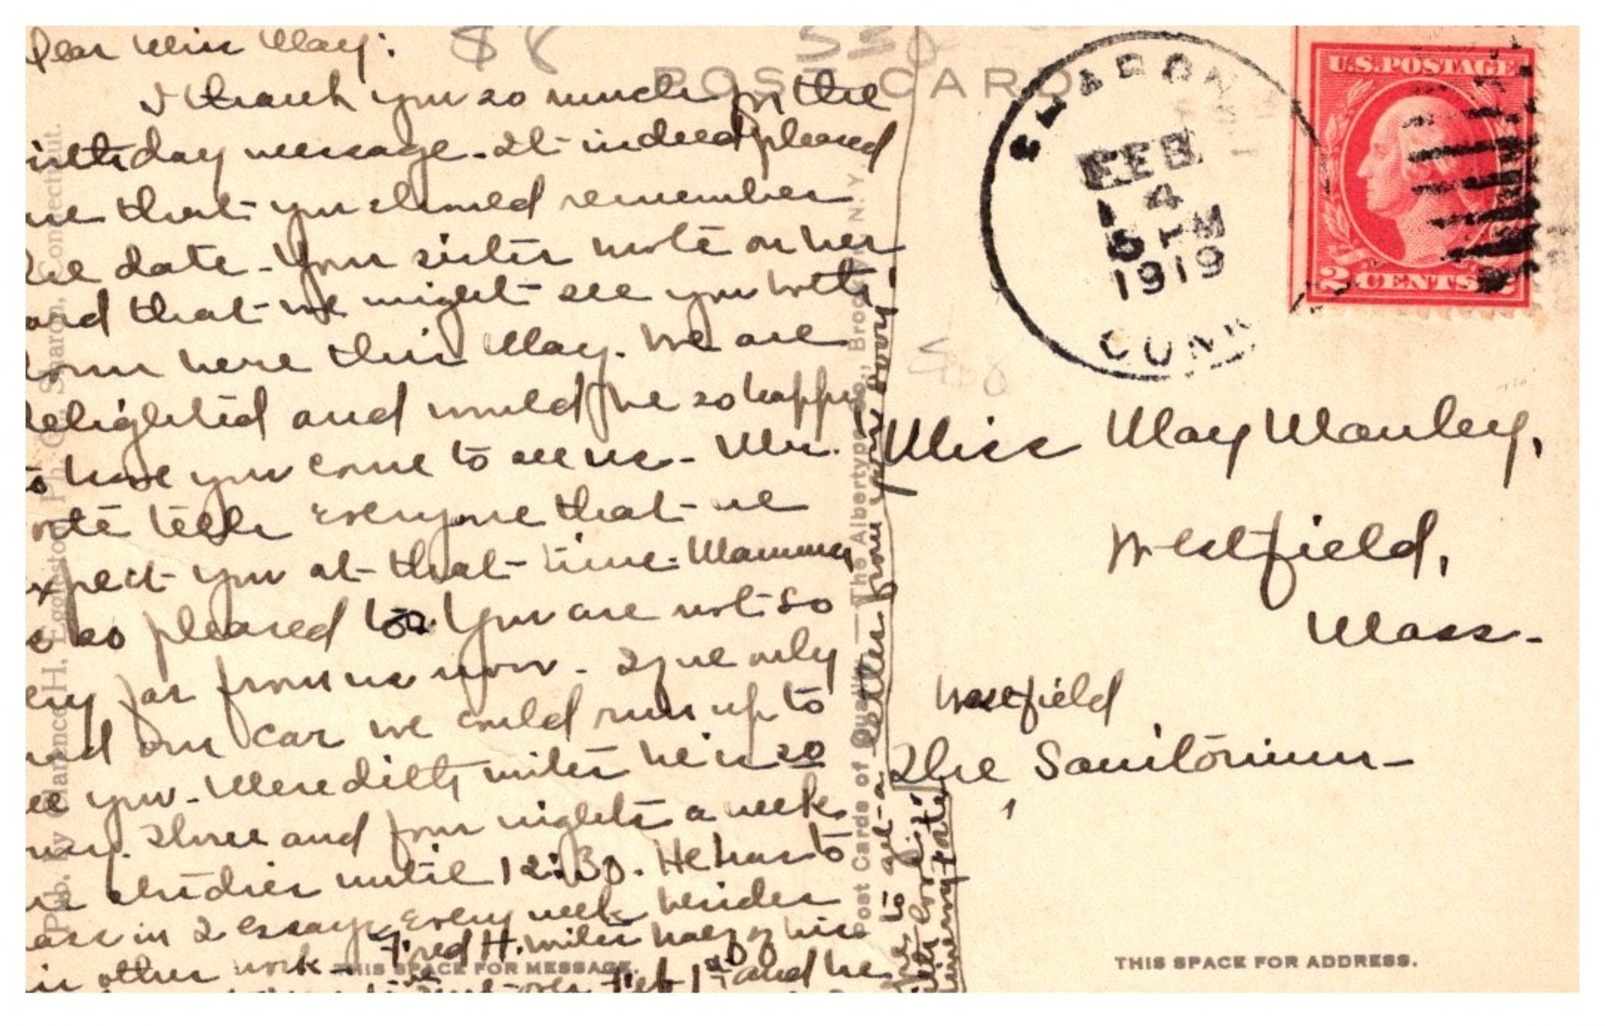 Dear Miss May:
I thank you so much for the
birthday message. It indeed pleased
me that you should remember
the date. Your sister wrote on her
card that we might see you both
down here this May. We are
delighted and would be so happy
to have you come to see us. Mr.
tells everyone that we
expect you at that time. Mamma
is so pleased too. You are not so
very far from us now. If we only
had our car we could run up to
see you. Meredith writes he is so
busy. Three and four nights a week
he studies until 12:30. He has to
pass in 2 essays every week besides
his other work. Fred H. writes
Feb 1st and he
to get a letter from
POST CARD
SHARON
FEB
4
5 PM
1919
CONN
U.S. POSTAGE
2 CENTS 2
Miss May Manley,
Westfield,
Mass.
Westfield
The Sanitorium
THIS SPACE FOR MESSAGE.
THIS SPACE FOR ADDRESS.
Pub. by Clarence H. Eggleston, Ph. G., Sharon, Connecticut.
Post Cards of Quality. — The Albertype Co., Brooklyn, N. Y.